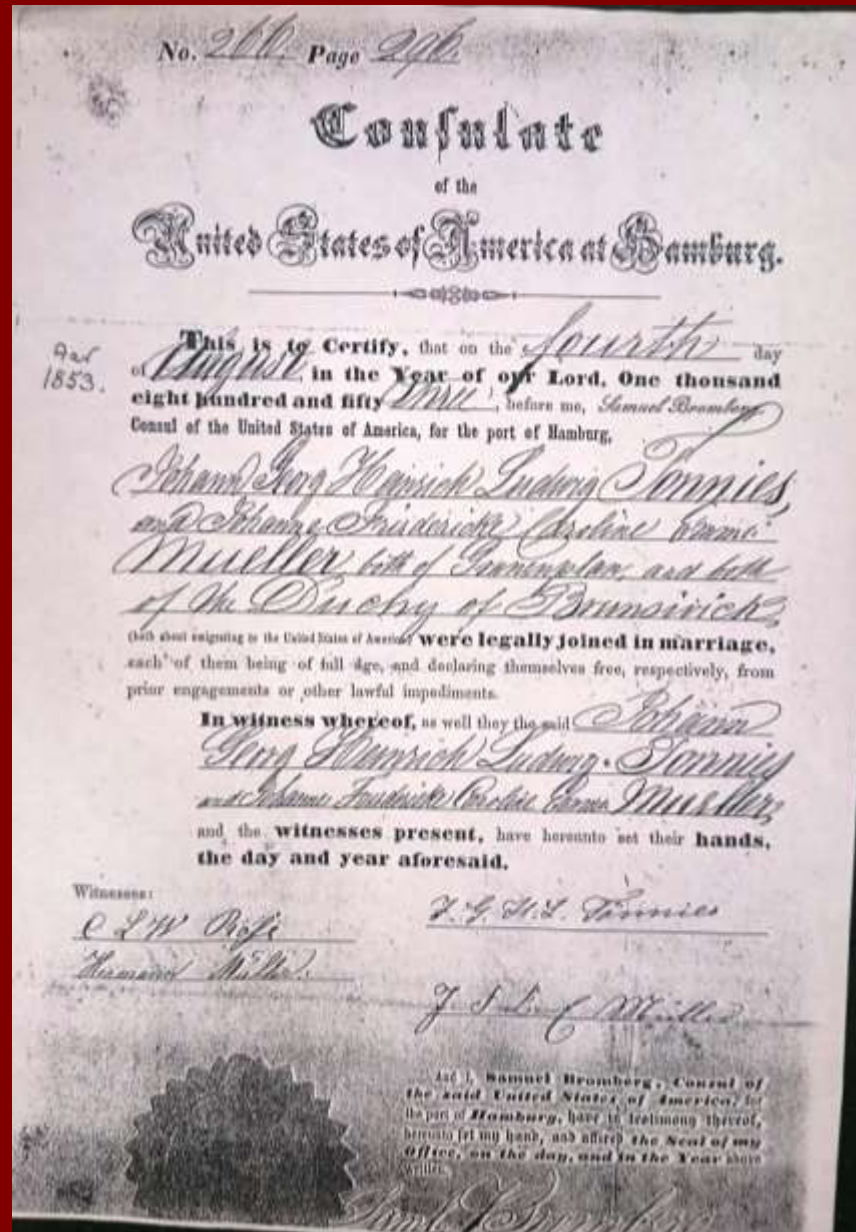 No. 266. Page 296.
Consulate
of the
United States of America at Hamburg.
1853.
This is to Certify, that on the fourth day
of August, in the Year of our Lord, One thousand
eight hundred and fifty three, before me, Samuel Bromberg
Consul of the United States of America, for the port of Hamburg,
Johann Georg Heinrich Ludwig Tonnies,
and Johanne Friedericke Caroline Emma
Mueller both of and both
of the Duchy of Brunswick,
(both about emigrating to the United States of America) were legally joined in marriage,
each of them being of full age, and declaring themselves free, respectively, from
prior engagements or other lawful impediments.
In witness whereof, as well they the said Johann
Georg Heinrich Ludwig Tonnies
and Johanne Friedericke Caroline Emma Mueller,
and the witnesses present, have hereunto set their hands,
the day and year aforesaid.
Witnesses:
C L W
J. G. H. L. Tönnies
Hermann Müller.
Müller
And I, Samuel Bromberg, Consul of
the said United States of America, for
the port of Hamburg, have in testimony thereof,
hereunto set my hand, and affixed the Seal of my
Office, on the day, and in the Year above
written.
Saml Bromberg